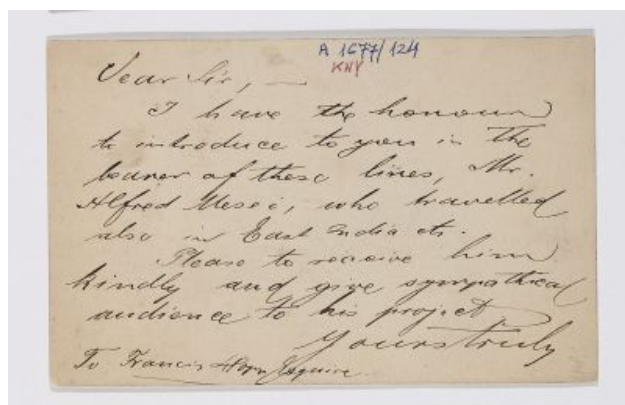 A 1677/124
KNY
Dear Sir, —
I have the honour
to introduce to you in the
bearer of these lines, Mr.
Alfred Mesei, who travelled
also in East India etc.
Please to receive him
kindly and give sympathical
audience to his project
Yours truly
To Francis Hopp Esquire.